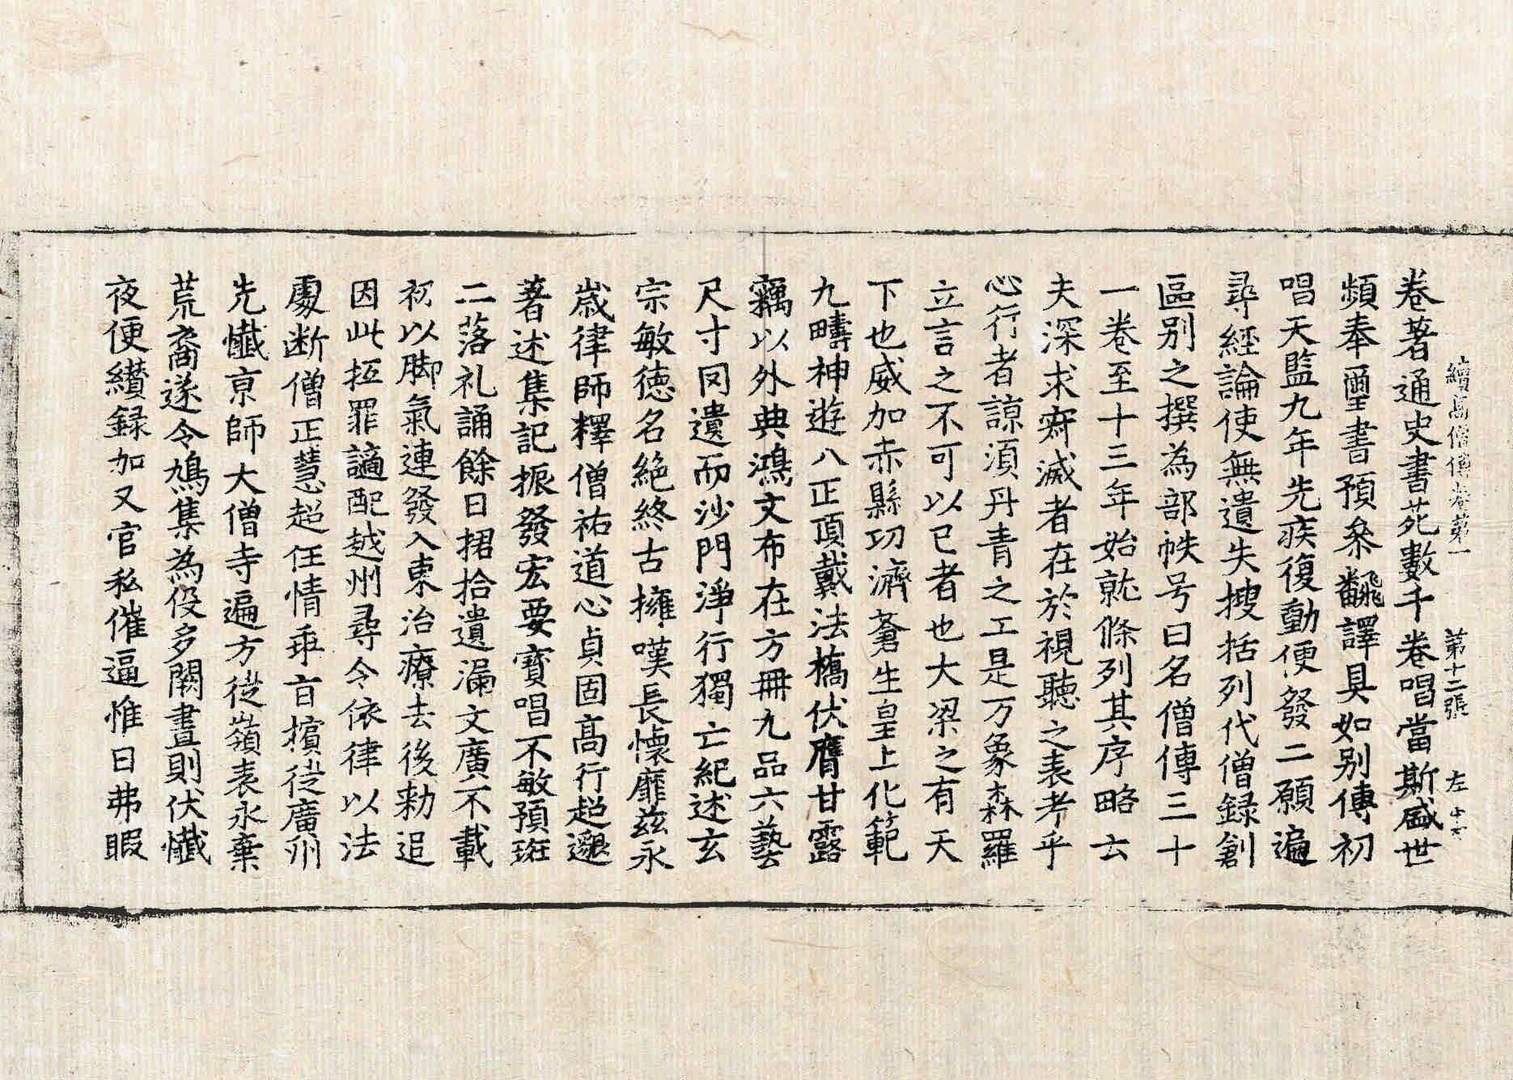 續高僧傳卷第一 第十二張 左
卷著通史書苑數千卷唱當斯盛世
頻奉璽書預參飜譯具如別傳初
唱天監九年先疾復動便發二願遍
尋經論使無遺失搜括列代僧錄創
區別之撰為部帙号曰名僧傳三十
一卷至十三年始就條列其序略云
夫深求寂滅者在於視聽之表考乎
心行者諒須丹青之工是万象森羅
立言之不可以已者也大梁之有天
下也威加赤縣功濟蒼生皇上化範
九疇神遊八正頂戴法橋伏膺甘露
竊以外典鴻文布在方冊九品六藝
尺寸罔遺而沙門淨行獨亡紀述玄
宗敏德名絕終古擁嘆長懷靡茲永
歲律師釋僧祐道心貞固高行超邈
著述集記振發宏要寶唱不敏預班
二落礼誦餘日捃拾遺漏文廣不載
初以脚氣連發入東治療去後勑追
因此抵罪謫配越州尋令依律以法
處断僧正慧超任情乖旨擯徙廣州
先懺京師大僧寺遍方徙嶺表永棄
荒裔遂令鳩集為役多闕晝則伏懺
夜便纘録加又官私催逼惟日弗暇